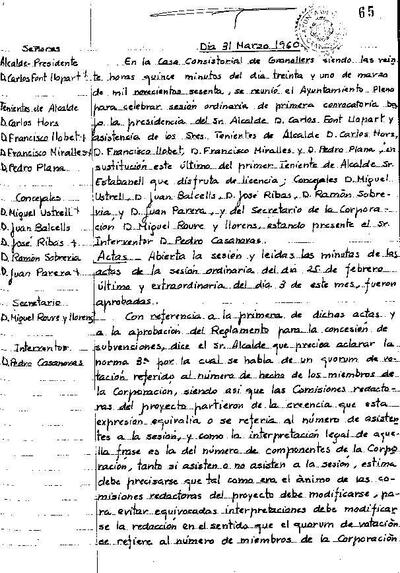 65
Día 31 Marzo 1960
Señores
Alcalde-Presidente
D. Carlos Font Llopart
Tenientes de Alcalde
D. Carlos Hors
D. Francisco Llobet
D. Francisco Miralles
D. Pedro Plana
Concejales
D. Miguel Ustrell
D. Juan Balcells
D. José Ribas
D. Ramón Sobrevia
D. Juan Parera
Secretario
D. Miguel Roure y Llorens
Interventor
D. Pedro Casanovas
En la Casa Consistorial de Granollers siendo las vein
te horas quince minutos del día treinta y uno de marzo
de mil novecientos sesenta, se reunió el Ayuntamiento Pleno
para celebrar sesión ordinaria de primera convocatoria ba
jo la presidencia del Sr. Alcalde D. Carlos Font Llopart y
asistencia de los Sres. Tenientes de Alcalde D. Carlos Hors,
D. Francisco Llobet, D. Francisco Miralles y D. Pedro Plana, en
sustitución este último del primer Teniente de Alcalde Sr.
Estabanell que disfruta de licencia; Concejales D. Miguel
Ustrell, D. Juan Balcells, D. José Ribas, D. Ramón Sobre-
via, y D. Juan Parera, y del Secretario de la Corpora-
ción D. Miguel Roure y Llorens, estando presente el Sr.
Interventor D. Pedro Casanovas.
Actas - Abierta la sesión y leídas las minutas de las
actas de la sesión ordinaria del día 25 de febrero
último y extraordinaria del día 3 de este mes, fueron
aprobadas.
Con referencia a la primera de dichas actas y
a la aprobación del Reglamento para la concesión de
subvenciones, dice el Sr. Alcalde que precisa aclarar la
norma 8ª por la cual se habla de un quorum de vo-
tación referido al número de hecho de los miembros de
la Corporación, siendo así que las Comisiones redacto-
ras del proyecto partieron de la creencia que esta
expresión equivalía o se refería al número de asisten
tes a la sesión, y como la interpretación legal de aque
lla frase es la del número de componentes de la Corpo
ración, tanto si asisten o no asisten a la sesión, estima
debe precisarse que tal como era el ánimo de las co-
misiones redactoras del proyecto debe modificarse, pa-
ra evitar equivocadas interpretaciones debe modificar
se la redacción en el sentido que el quorum de votación
se refiere al número de miembros de la Corporación